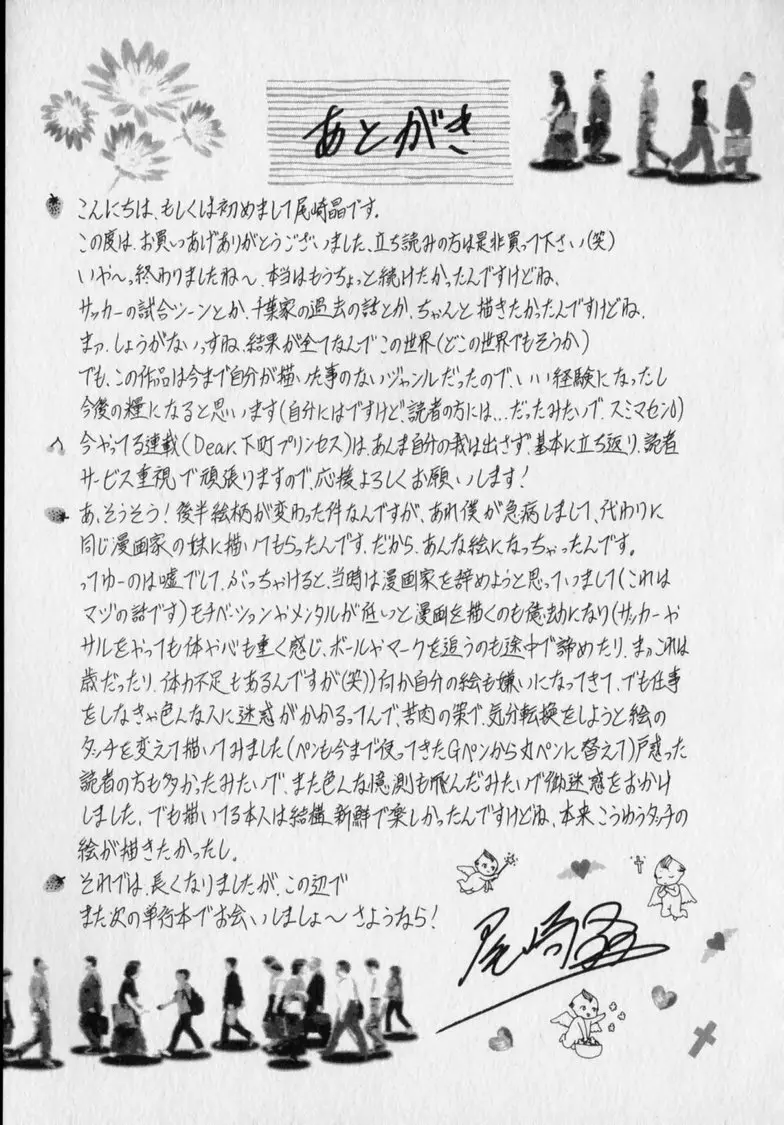 あとがき
こんにちは、もしくは初めまして尾崎晶です。
この度は、お買いあげありがとうございました、立ち読みの方は是非買って下さい(笑)
いや〜っ終わりましたね〜、本当はもうちょっと続けたかったんですけどね、
サッカーの試合シーンとか、千葉家の過去の話とか、ちゃんと描きたかったんですけどね、
まァ、しょうがないっすね、結果が全てなんでこの世界(どこの世界でもそうか)
でも、この作品は今まで自分が描いた事のないジャンルだったので、いい経験になったし
今後の糧になると思います(自分にはですけど、読者の方には…だったみたいで、スミマセン)
今やってる連載(Dear.下町プリンセス)は、あんま自分の我は出さず、基本に立ち返り、読者
サービス重視で頑張りますので、応援よろしくお願いします!
あ、そうそう!後半絵柄が変わった件なんですが、あれ僕が急病しまして、代わりに
同じ漫画家の妹に描いてもらったんです、だから、あんな絵になっちゃったんです。
ってゆーのは嘘でして、ぶっちゃけると、当時は漫画家を辞めようと思っていまして(これは
マヅの話です)モチベーションやメンタルが低いと漫画を描くのも億劫になり(サッカーや
サルをやっても体や心も重く感じ、ボールやマークを追うのも途中で諦めたり、まァこれは
歳だったり、体力不足もあるんですが(笑))何か自分の絵も嫌いになってきて、でも仕事
をしなきゃ色んな人に迷惑がかかるってんで、苦肉の策で、気分転換をしようと絵の
タッチを変えて描いてみました(ペンも今まで使ってきたGペンから丸ペンに替えて)戸惑った
読者の方も多かったみたいで、また色んな憶測も飛んだみたいで御迷惑をおかけ
しました、でも描いてる本人は結構、新鮮で楽しかったんですけどね、本来こうゆうタッチの
絵が描きたかったし。
それでは、長くなりましたが、この辺で
また次の単行本でお会いしましょ〜さようなら!
尾崎晶